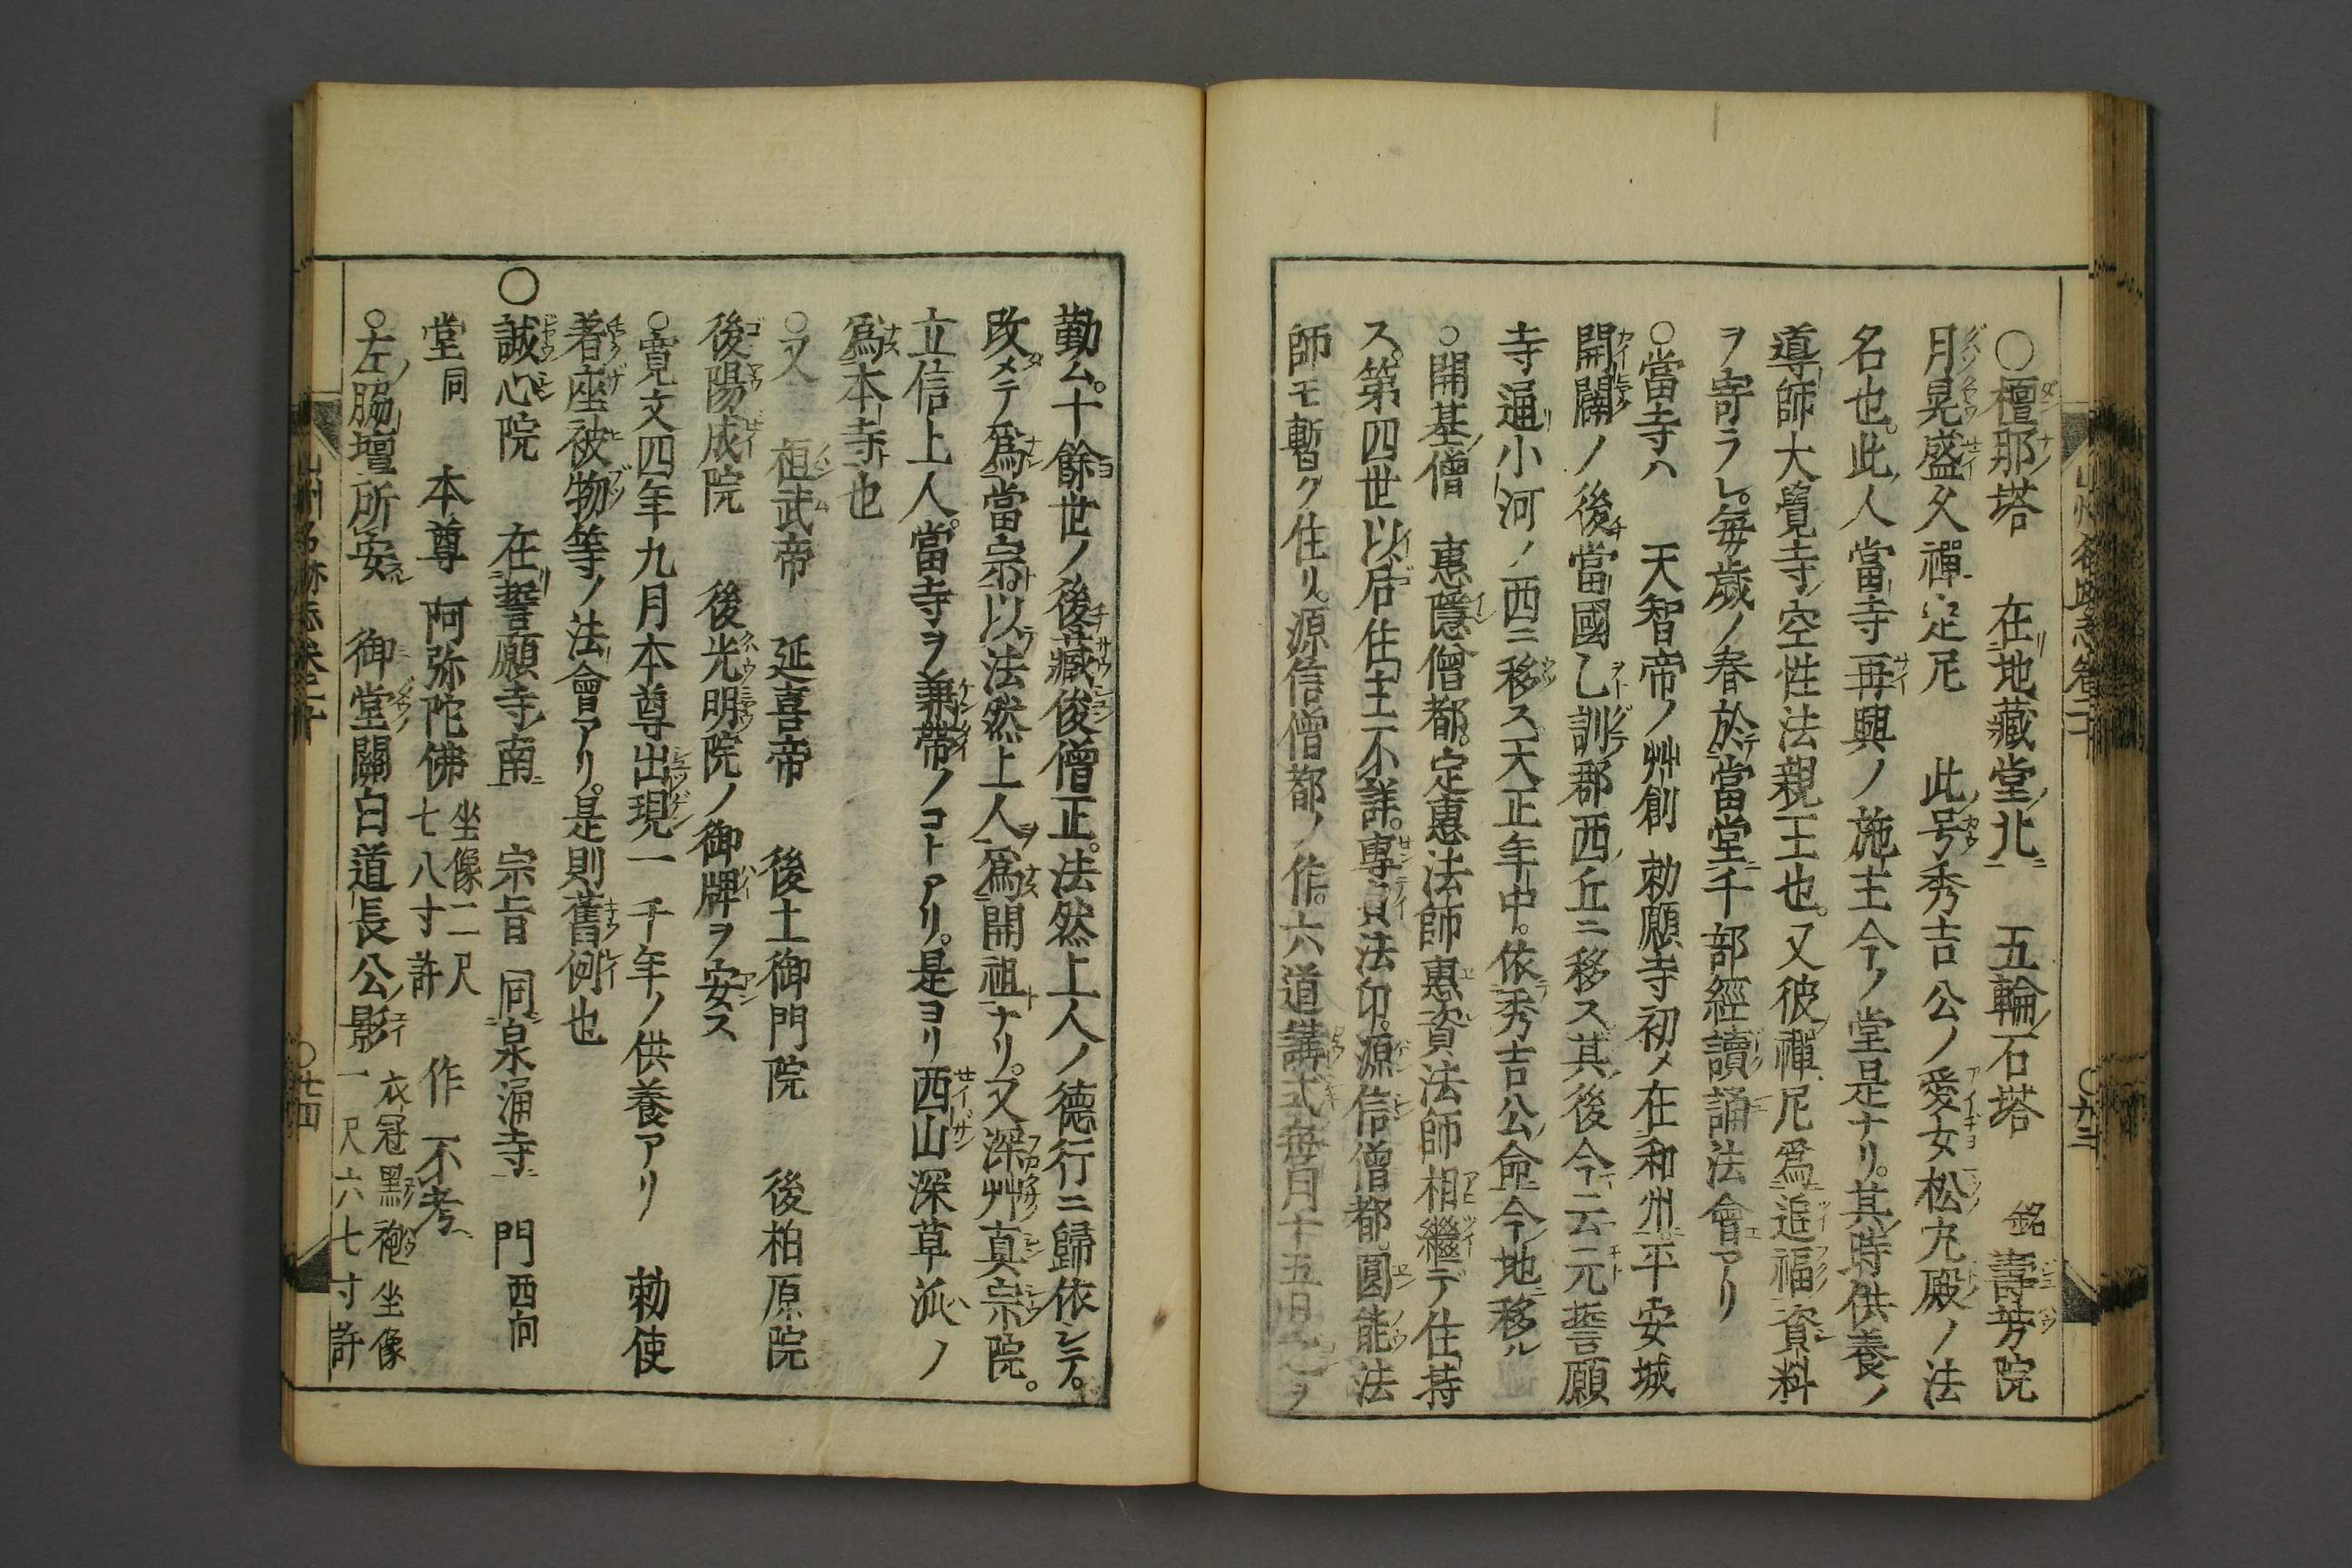 ○檀那塔　在地藏堂北　五輪石塔　銘壽芳院
月晃盛久禪定尼　此号秀吉公ノ愛女松丸殿ノ法
名也。此人當寺再興ノ施主今ノ堂是ナリ。其時供養ノ
導師大覺寺空性法親王也。又彼禪尼爲追福資料
ヲ寄ラレ。毎歳ノ春於當堂千部經讀誦法會アリ
○當寺ハ　天智帝ノ艸創　勅願寺初メ在和州平安城
開闢ノ後當國乙訓郡西ノ丘ニ移ス其後今云元誓願
寺通小河ノ西ニ移ス。天正年中。依秀吉公命今地移ル
○開基僧　惠隱僧都。定惠法師惠資法師相繼デ住持
ス。第四世以居住主不詳。專貞法印。源信僧都。圓能法
師モ暫ク住リ。源信僧都ノ作。六道講式毎月十五日之ヲ
勤ム。十餘世ノ後藏俊僧正。法然上人ノ德行ニ歸依シテ。
改メテ爲當宗。以法然上人爲開祖ナリ。又深艸真宗院。
立信上人。當寺ヲ兼帶ノコトアリ。是ヨリ西山深草派ノ
爲本寺也
○又　桓武帝　延喜帝　後土御門院　後柏原院
後陽成院　後光明院ノ御牌ヲ安ス
○寛文四年九月本尊出現一千年ノ供養アリ　勅使
着座被物等ノ法會アリ。是則舊例也
○誠心院　在誓願寺南　宗旨同泉涌寺　門西向
堂同　本尊　阿弥陀佛坐像二尺七八寸許　作不考
○左脇壇所安　御堂關白道長公影衣冠黑袍坐像一尺六七寸許
山州名跡志卷二十　○廿四